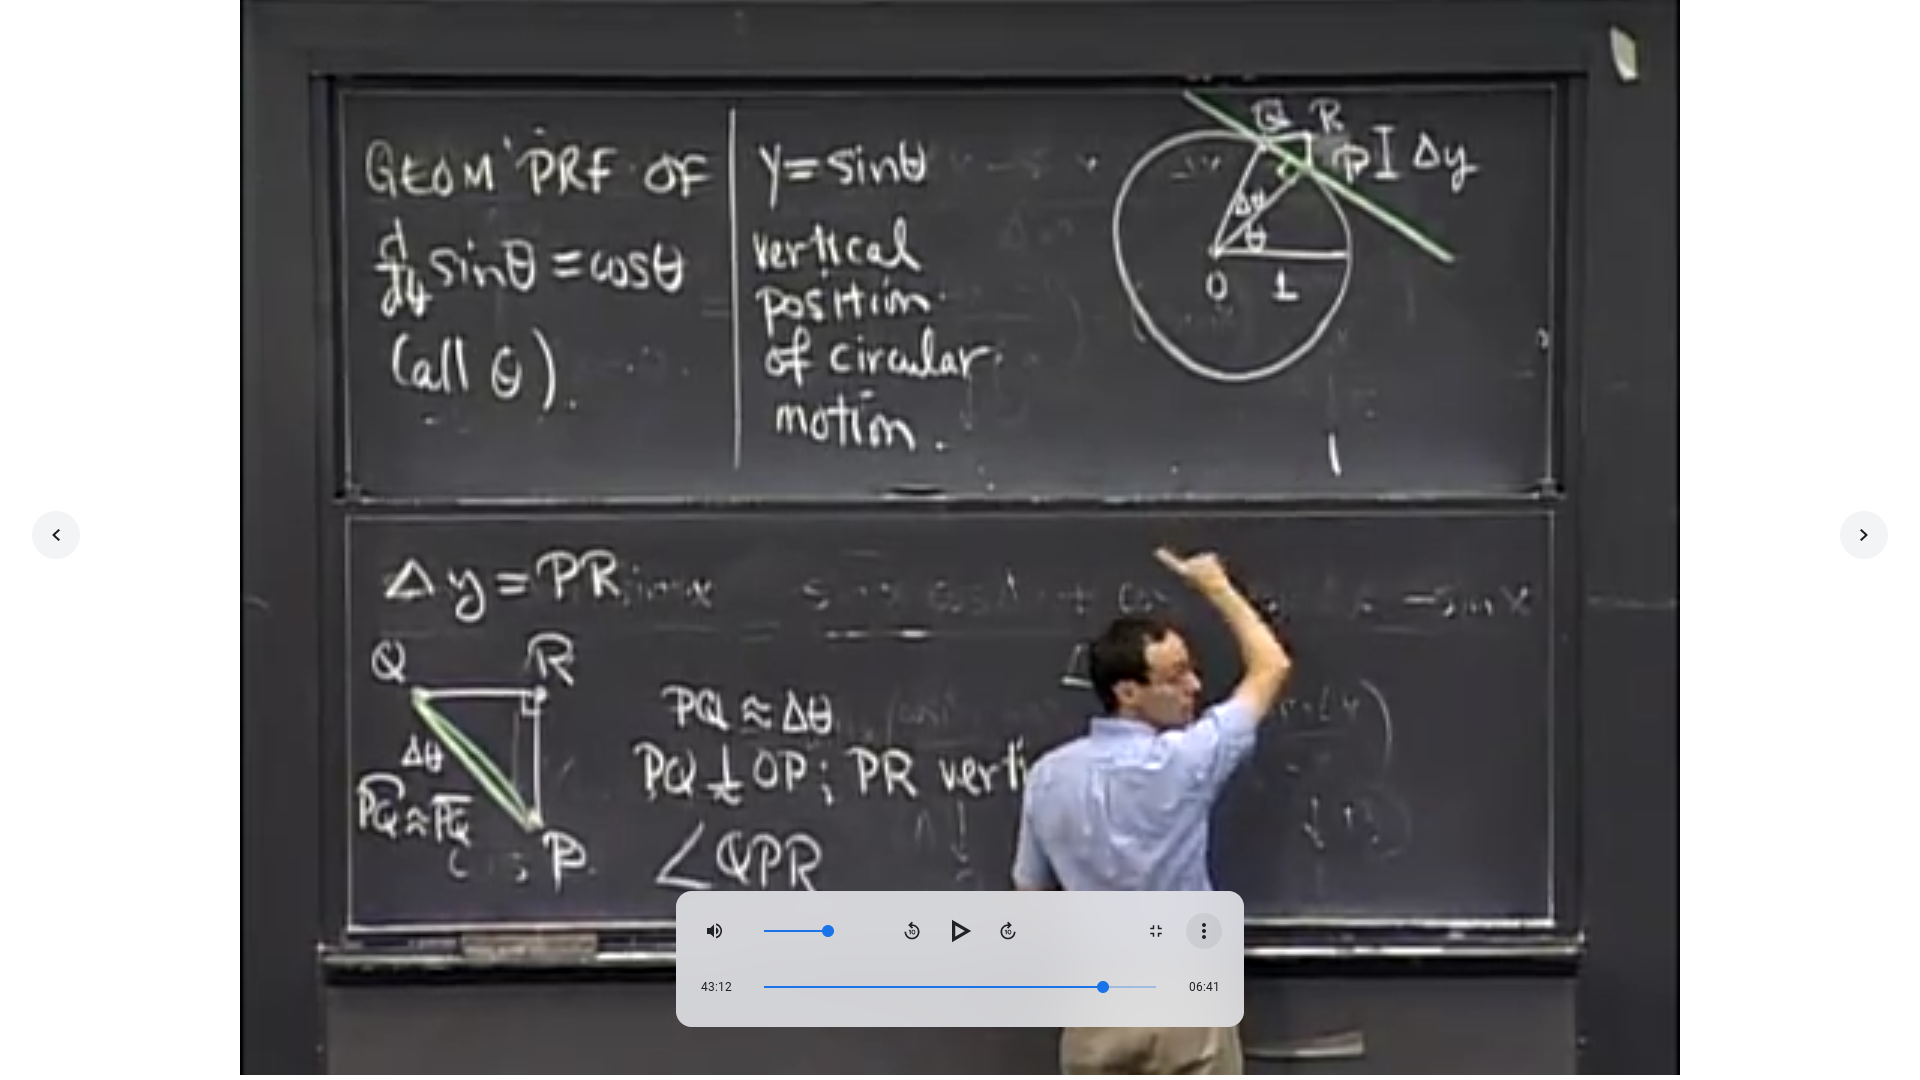 GEOM PRF OF
d/dθ sinθ = cosθ
(all θ).
y = sinθ
vertical
position
of circular
motion.
Q R
P I Δy
Δθ
θ
O 1
Δy = PR
Q R
Δθ
PQ ≈ PQ
P
PQ ≈ Δθ
PQ ⊥ OP; PR verti
∠QPR
43:12
06:41